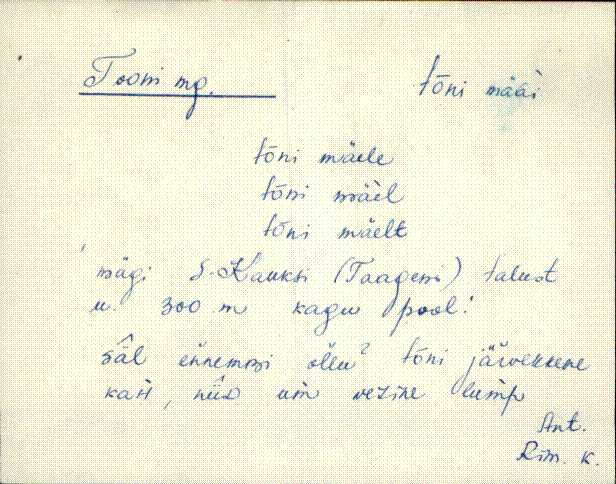 Tooni mg. tōni mäǟi
tōni mäele
tōni mäèl
tōni mäelt
mägi S-Kauksi (Taageni) talust
u. 300 m kagu pool.
säl ennemui ollu? tōni järvekene
kah, nüid um vesine lump
Ant.
Rim. K.